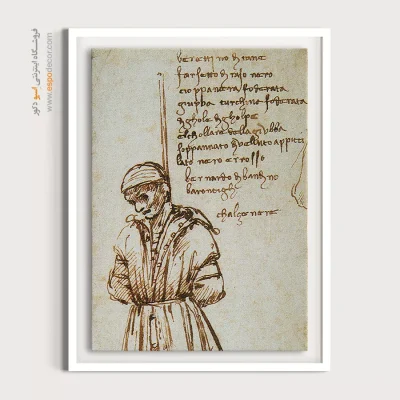 فروشگاه اینترنتی اسپو دکور
www.espodecor.com
berettino di tane
farsetto di raso nero
cioppa nera foderata
giubba turchina foderata
di ghole di gholpe
el chollare della giubba
soppannato di velluto appicci
lato nero e rosso
bernardo di bandino
baroncigli
chalze nere